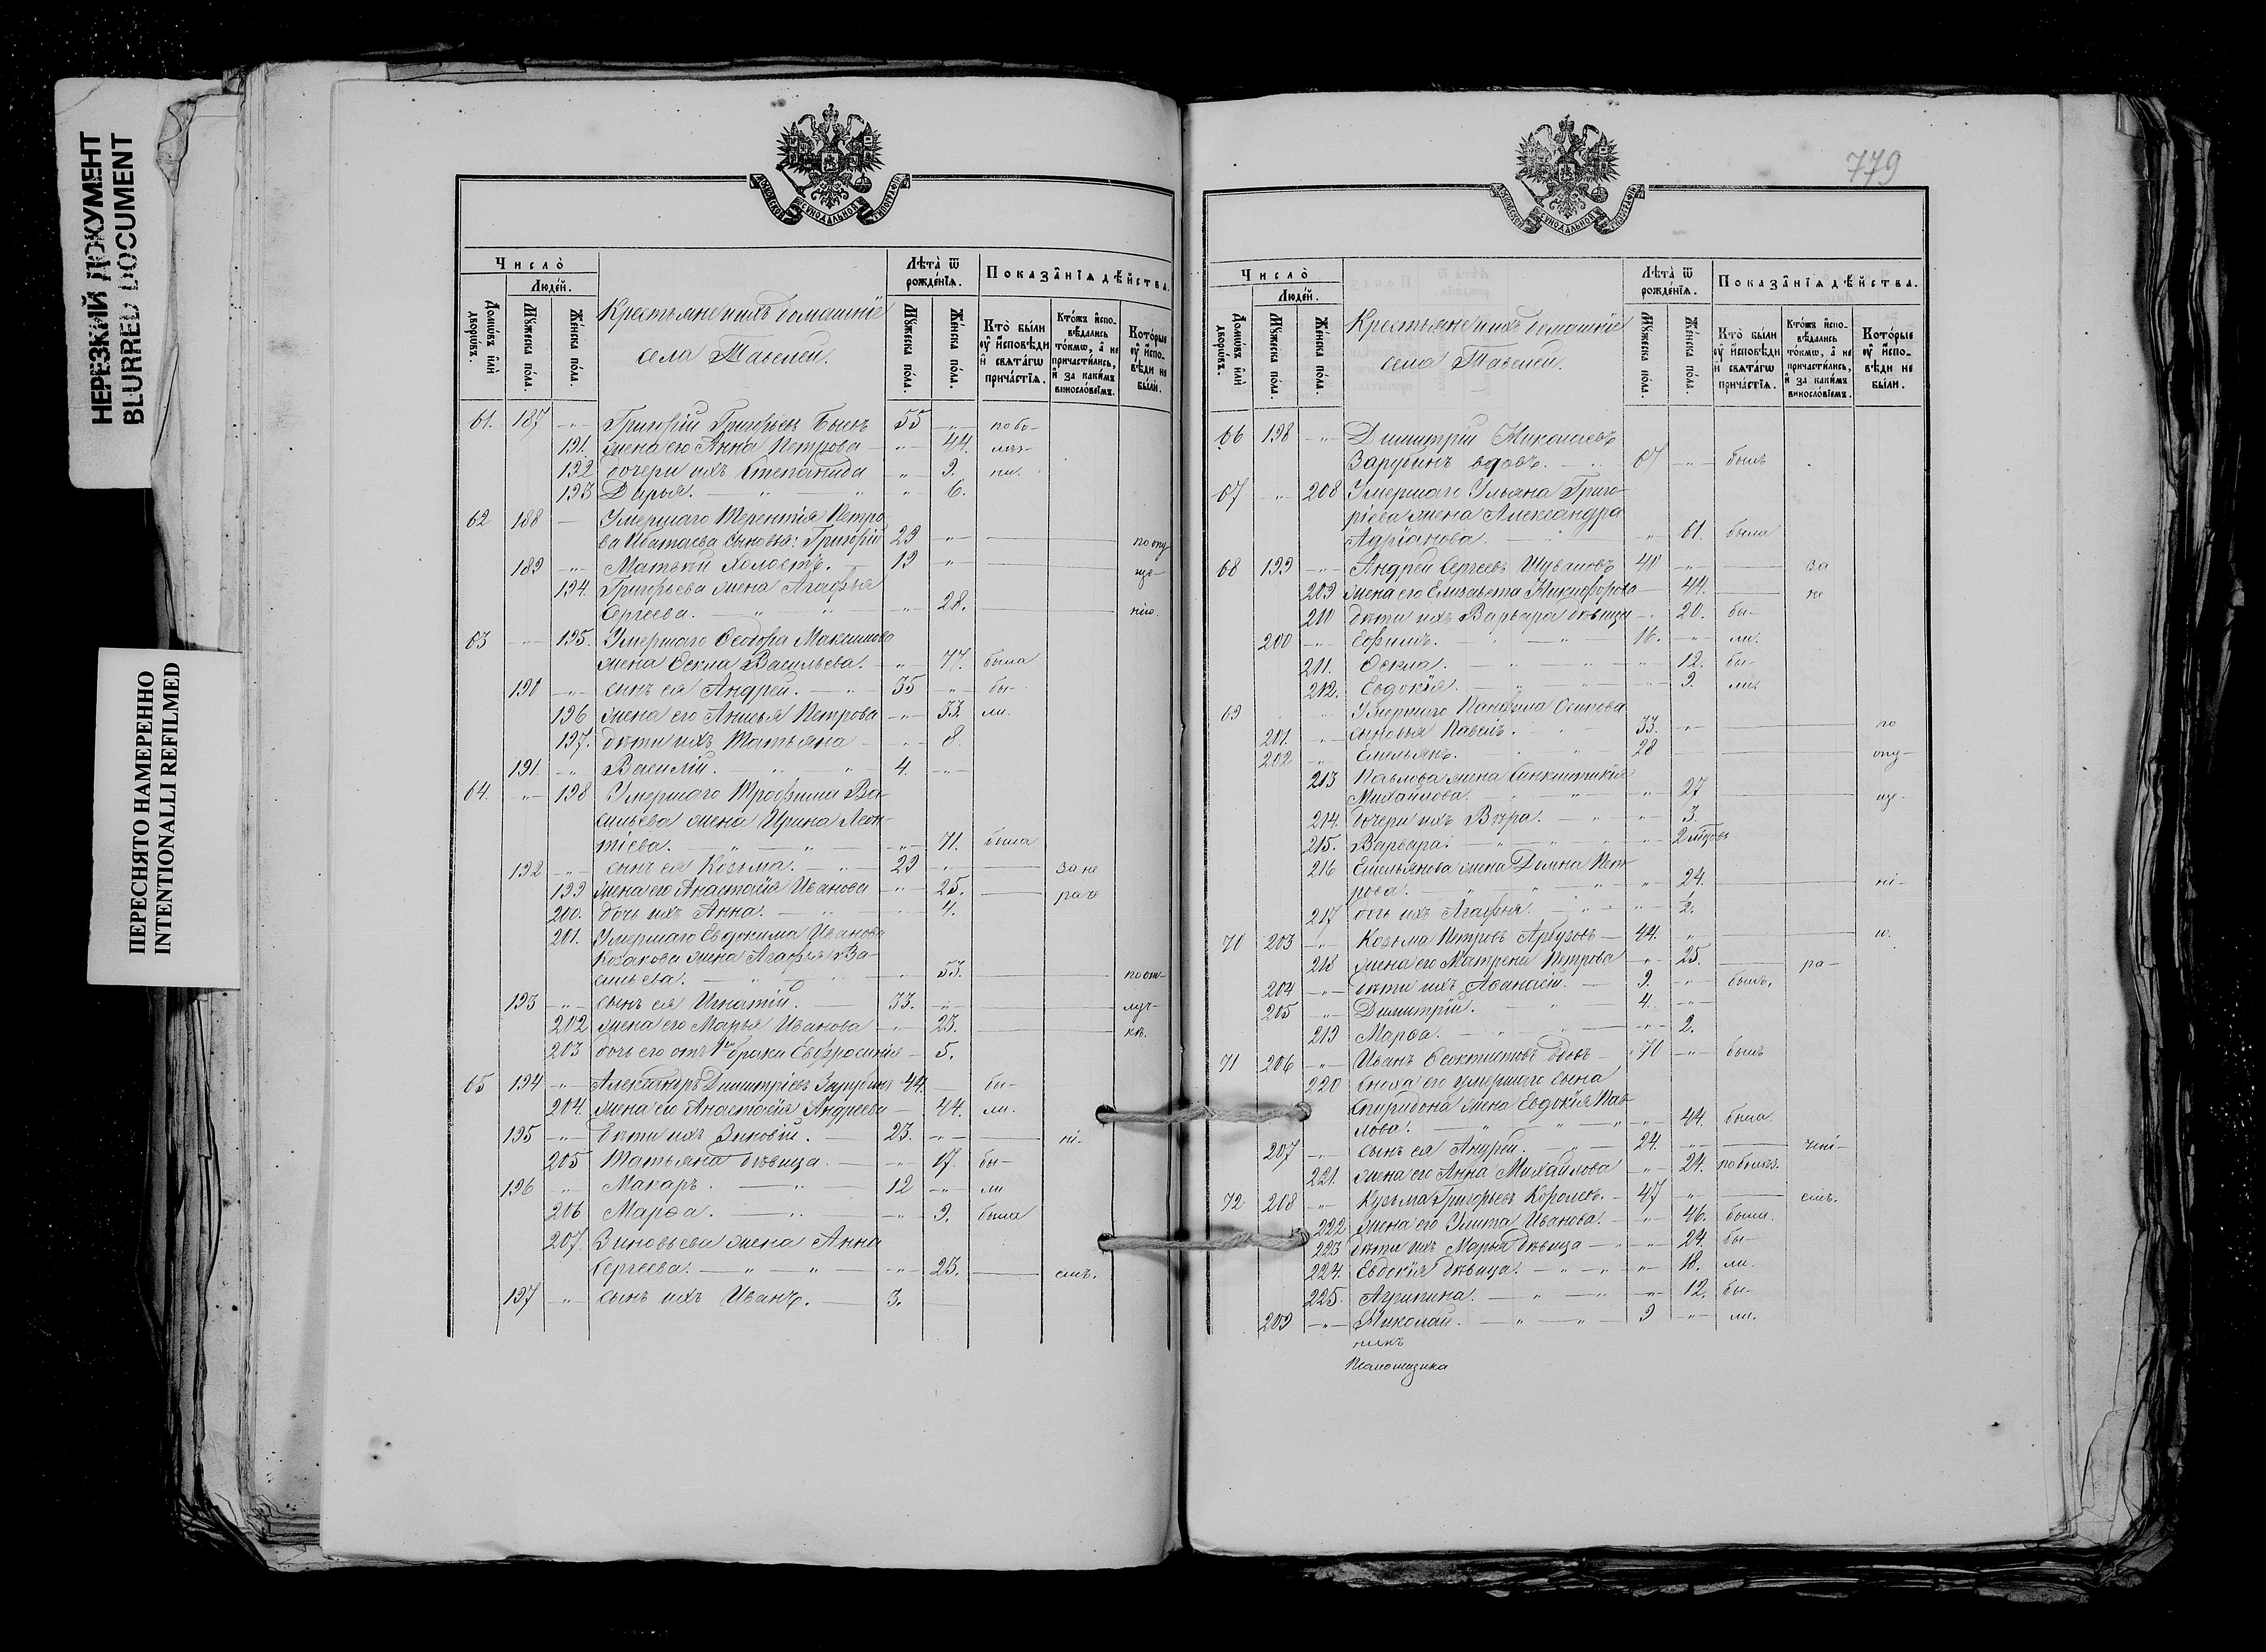 НЕРЕЗКИЙ ДОКУМЕНТ
BLURRED DOCUMENT
ПЕРЕСНЯТО НАМЕРЕННО
INTENTIONALLI REFILMED
МОСКОВСКОЙ СѴНОДАЛЬНОЙ ТИПОГРАФІИ
Число̀
Людей.
Домѡвъ илѝ дворѡвъ.
Мꙋжеска пола.
Женска пола.
Крестьяне и ихъ домашніе
села Тавелей.
Лѣта̀ ѿ рожденїѧ.
Мꙋжеска пола.
Женска пола.
Показанїѧ дѣйства.
Кто̀ были ꙋ исповѣди и свѧтагѡ причастїѧ.
Ктожъ исповѣдались токмѡ, а не причастились, и за какимъ винословїемъ.
Которые ꙋ исповѣди не были.
61. 187 -"- Григорій Григорьевъ Быкъ 55 -"- по бо-
191. жена его Анна Петрова -"- 44. лѣз-
192 дочери ихъ Степанида " 9. ни.
193 Дарья. " 6.
62 188 — Умершаго Терентія Петро
ва сыновья: Григорій 29 -"- по опу
189 -"- Матвій холостъ. 19 " ще-
194. Григорьева жена Агафья
Сергеева. -"- 28. нію.
63 -"- 195. Умершаго Ѳеодора Максимова
жена Ѳекла Васильева. -"- 77. была
190 -"- сынъ ея Андрей. 35 -"- бы-
196 жена его Анисья Петрова -"- 33. ли.
197. дѣти ихъ Татьяна -"- 8.
191. -"- Василій. 4. -"-
64. -"- 198 Умершаго Трофима Ва-
сильева жена Ирина Леон-
тіева. -"- 71. была
192 -"- сынъ ея Козьма. 29 -"- за не
199 жена его Анастасія Иванова -"- 25. раче
200. дочь ихъ Анна. -"- 4.
201. Умершаго Евдокима Иванова
Козакова жена Агафья Ва-
сильева. " 53. по от-
193 -"- сынъ ея Игнатій. 33. -"- луч-
202 жена его Марья Иванова -"- 23. кѣ.
203 дочь его отъ 1го брака Евфросинія 5.
65 194 -"- Александръ Димитріевъ Зарубинъ 44. бы-
204. жена его Анастасія Андреева 44. ли.
195 -"- дѣти ихъ Зиновій. 23. -"- ні-
205 Татьяна дѣвица. -"- 17. бы-
196 " Макаръ. 12 -"- ли
206 Марѳа. -"- 9. была
207. Зиновьева жена Анна
Сергеева. -"- 23. емъ.
197 -"- сынъ ихъ Иванъ. 3.
779
МОСКОВСКОЙ СѴНОДАЛЬНОЙ ТИПОГРАФІИ
Число̀
Людей.
Домѡвъ илѝ дворѡвъ.
Мꙋжеска пола.
Женска пола.
Крестьяне и ихъ домашніе
села Тавелей.
Лѣта̀ ѿ рожденїѧ.
Мꙋжеска пола.
Женска пола.
Показанїѧ дѣйства.
Кто̀ были ꙋ исповѣди и свѧтагѡ причастїѧ.
Ктожъ исповѣдались токмѡ, а не причастились, и за какимъ винословїемъ.
Которые ꙋ исповѣди не были.
66 198 -"- Димитрій Николаевъ
Зарубинъ вдовъ. 67 -"- былъ
67 -"- 208 Умершаго Ульяна Григо-
ріева жена Александра
Адріанова. " 61. была
68 199 -"- Андрей Сергеевъ 40 -"- за
209 жена его Елизавета Никифорова 44. не
210 дѣти ихъ Варвара дѣвица -"- 20. бы-
200 -"- Ефимъ. 16. -"- ли.
211. Ѳекла. -"- 12. бы-
212. Евдокія. -"- 9. ли.
69 Умершаго Панфила Осипова
201. -"- сыновья Павелъ. 33. -"- по
202 -"- Емельянъ. 28 опу-
213 Павлова жена Синклитикія
Михайлова. -"- 27 ще-
214. дочери ихъ Вѣра. -"- 3.
215. Варвара. -"- 2
216 Емельянова жена Домна Пет
рова. -"- 24. ні-
217 дочь ихъ Агафья. -"- 2.
70 203 -"- Козьма Петровъ Арбузовъ 44. " ю.
218 жена его Матрена Петрова -"- 25. ра-
204 -"- дѣти ихъ Аѳанасій. 9. -"- былъ.
205 -"- Димитрій. 4. -"-
219 Марѳа. -"- 2.
71 206 -"- Иванъ Ѳеоктистовъ вдовъ 70 -"- былъ
220 сноха его умершаго сына
Спиридона жена Евдокія Пав
лова. -"- 44. была.
207 -"- сынъ ея Андрей. 24. -"- чені-
221. жена его Анна Михайлова -"- 24.
72 208 -"- Кузьма Григорьевъ Королевъ. 47 " емъ.
222 жена его Улита Иванова. -"- 46. были.
223 дѣти ихъ Марья дѣвица -"- 24. бы-
224. Евдокія дѣвица. -"- 18. ли.
225. Агрипина. -"- 12. бы-
209 -"- Николай. 9 -"- ли.
никъ
Псаломщика